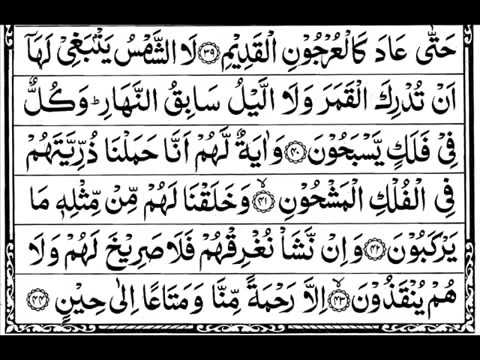 حَتّٰى عَادَ كَالْعُرْجُوْنِ الْقَدِيْمِ ﴿۳۹﴾ لَا الشَّمْسُ يَنْۢبَغِيْ لَهَاۤ
اَنْ تُدْرِكَ الْقَمَرَ وَلَا الَّيْلُ سَابِقُ النَّهَارِ ؕ وَكُلٌّ
فِيْ فَلَكٍ يَّسْبَحُوْنَ ﴿۴۰﴾ وَاٰيَةٌ لَّهُمْ اَنَّا حَمَلْنَا ذُرِّيَّتَهُمْ
فِي الْفُلْكِ الْمَشْحُوْنِ ۙ﴿۴۱﴾ وَخَلَقْنَا لَهُمْ مِّنْ مِّثْلِهٖ مَا
يَرْكَبُوْنَ ﴿۴۲﴾ وَاِنْ نَّشَاْ نُغْرِقْهُمْ فَلَا صَرِيْخَ لَهُمْ وَلَا
هُمْ يُنْقَذُوْنَ ۙ﴿۴۳﴾ اِلَّا رَحْمَةً مِّنَّا وَمَتَاعًا اِلٰى حِيْنٍ ﴿۴۴﴾